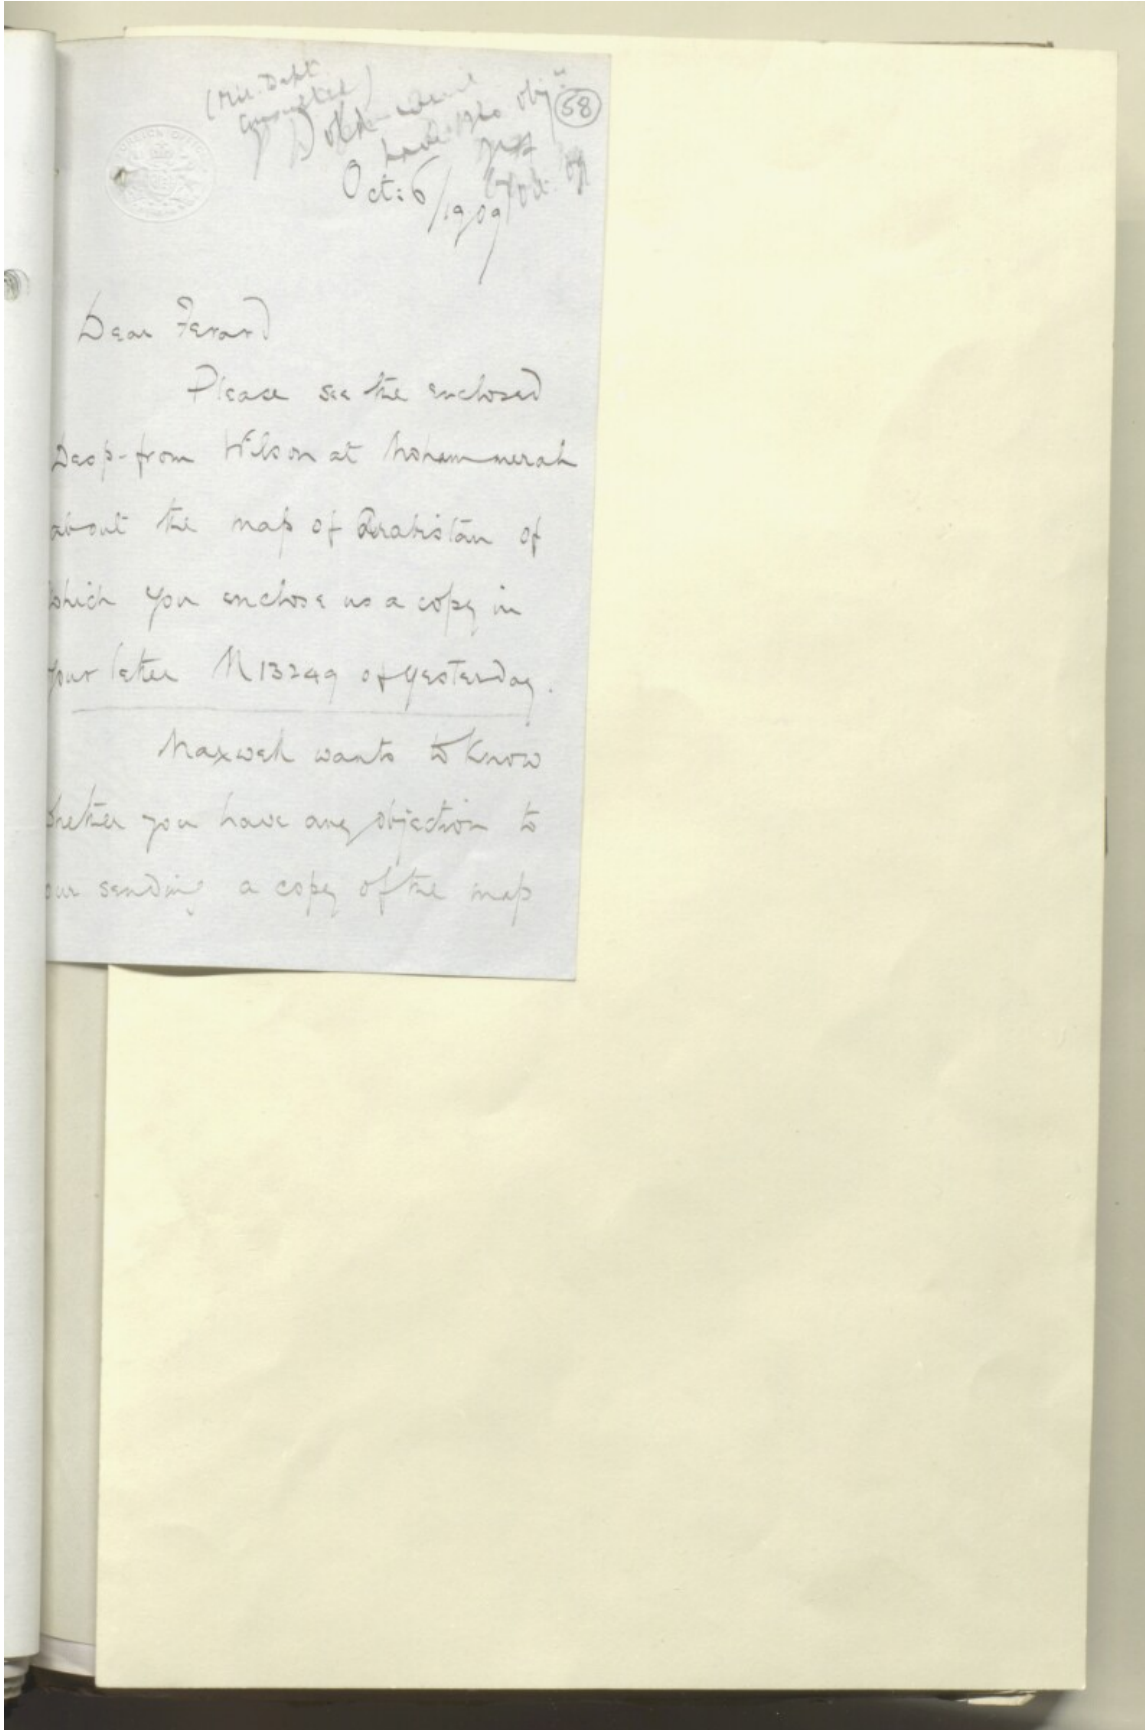 (Mil. Dept.
Consulted)
obj:ⁿ
58
Oct: 6/1909
Dear Ferard
Please see the enclosed
Desp- from Wilson at Mohammerah
about the map of Arabistan of
which you enclose us a copy in
your letter M13249 of yesterday.
Maxwell wants to know
whether you have any objection to
our sending a copy of the map